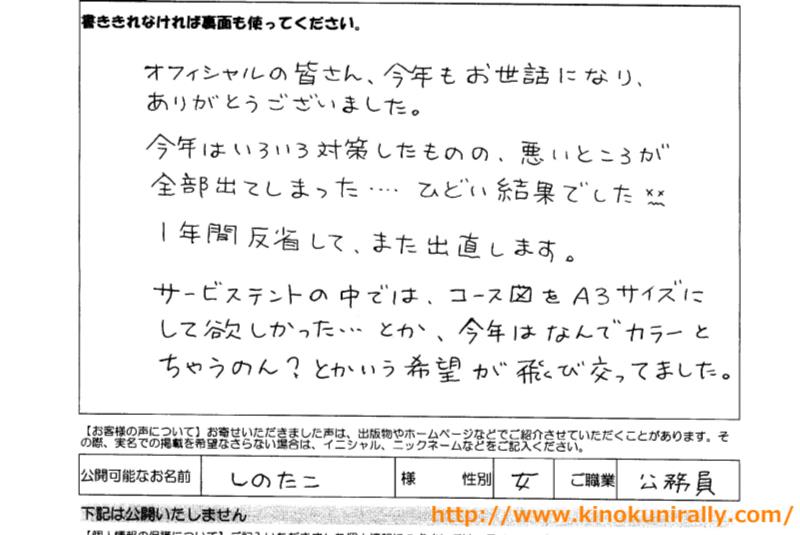 書ききれなければ裏面も使ってください。
オフィシャルの皆さん、今年もお世話になり、
ありがとうございました。
今年はいろいろ対策したものの、悪いところが
全部出てしまった‥‥ ひどい結果でした
1年間反省して、また出直します。
サービステントの中では、コース図をA3サイズに
して欲しかった… とか、今年はなんでカラーと
ちゃうのん?とかいう希望が飛び交ってました。
【お客様の声について】お寄せいただきました声は、出版物やホームページなどでご紹介させていただくことがあります。そ
の際、実名での掲載を希望なさらない場合は、イニシャル、ニックネームなどをご記入ください。
公開可能なお名前 しのたこ 様 性別 女 ご職業 公務員
下記は公開いたしません
http://www.kinokunirally.com/